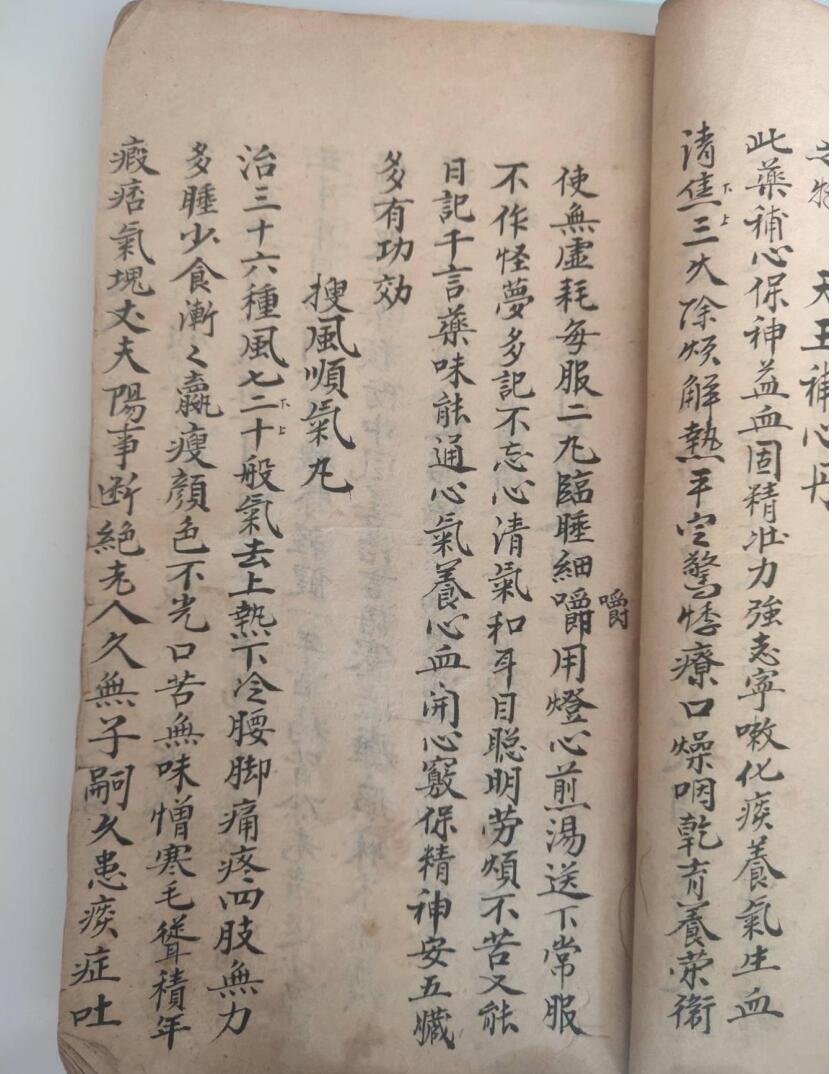 天王補心丹
此藥補心保神益血固精壯力強志寧嗽化痰養氣生血
清焦下三上火除煩解熱平定驚悸療口燥咽乾育養荣衛
使無虛耗每服二丸臨睡細嚼用燈心煎湯送下常服
嚼
不作怪夢多記不忘心清氣和耳目聡明劳煩不苦又能
日記千言藥味能通心氣養心血開心竅保精神安五臟
多有功効
搜風順氣丸
治三十六種風七二下十上般氣去上熱下冷腰脚痛疼四肢無力
多睡少食漸々羸瘦顔色不光口苦無味憎寒毛聳積年
瘕痞氣塊丈夫陽事断絶老人久無子嗣久患痰症吐